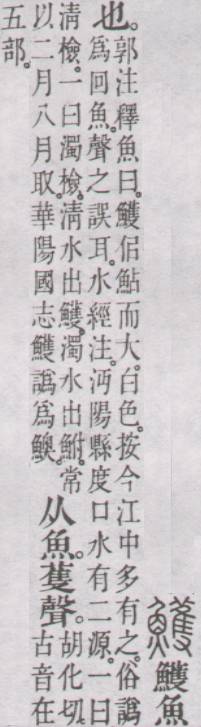 鱯 鱯魚
也。
郭注釋魚曰。鱯佀鮎而大。白色。按今江中多有之。俗譌
爲回魚。聲之誤耳。水經注。沔陽縣度口水有二源。一曰
清檢。一曰濁檢。清水出鱯。濁水出鮒。常
以二月八月取。華陽國志鱯譌爲
从魚。蒦聲。
胡化切。
古音在
五部。